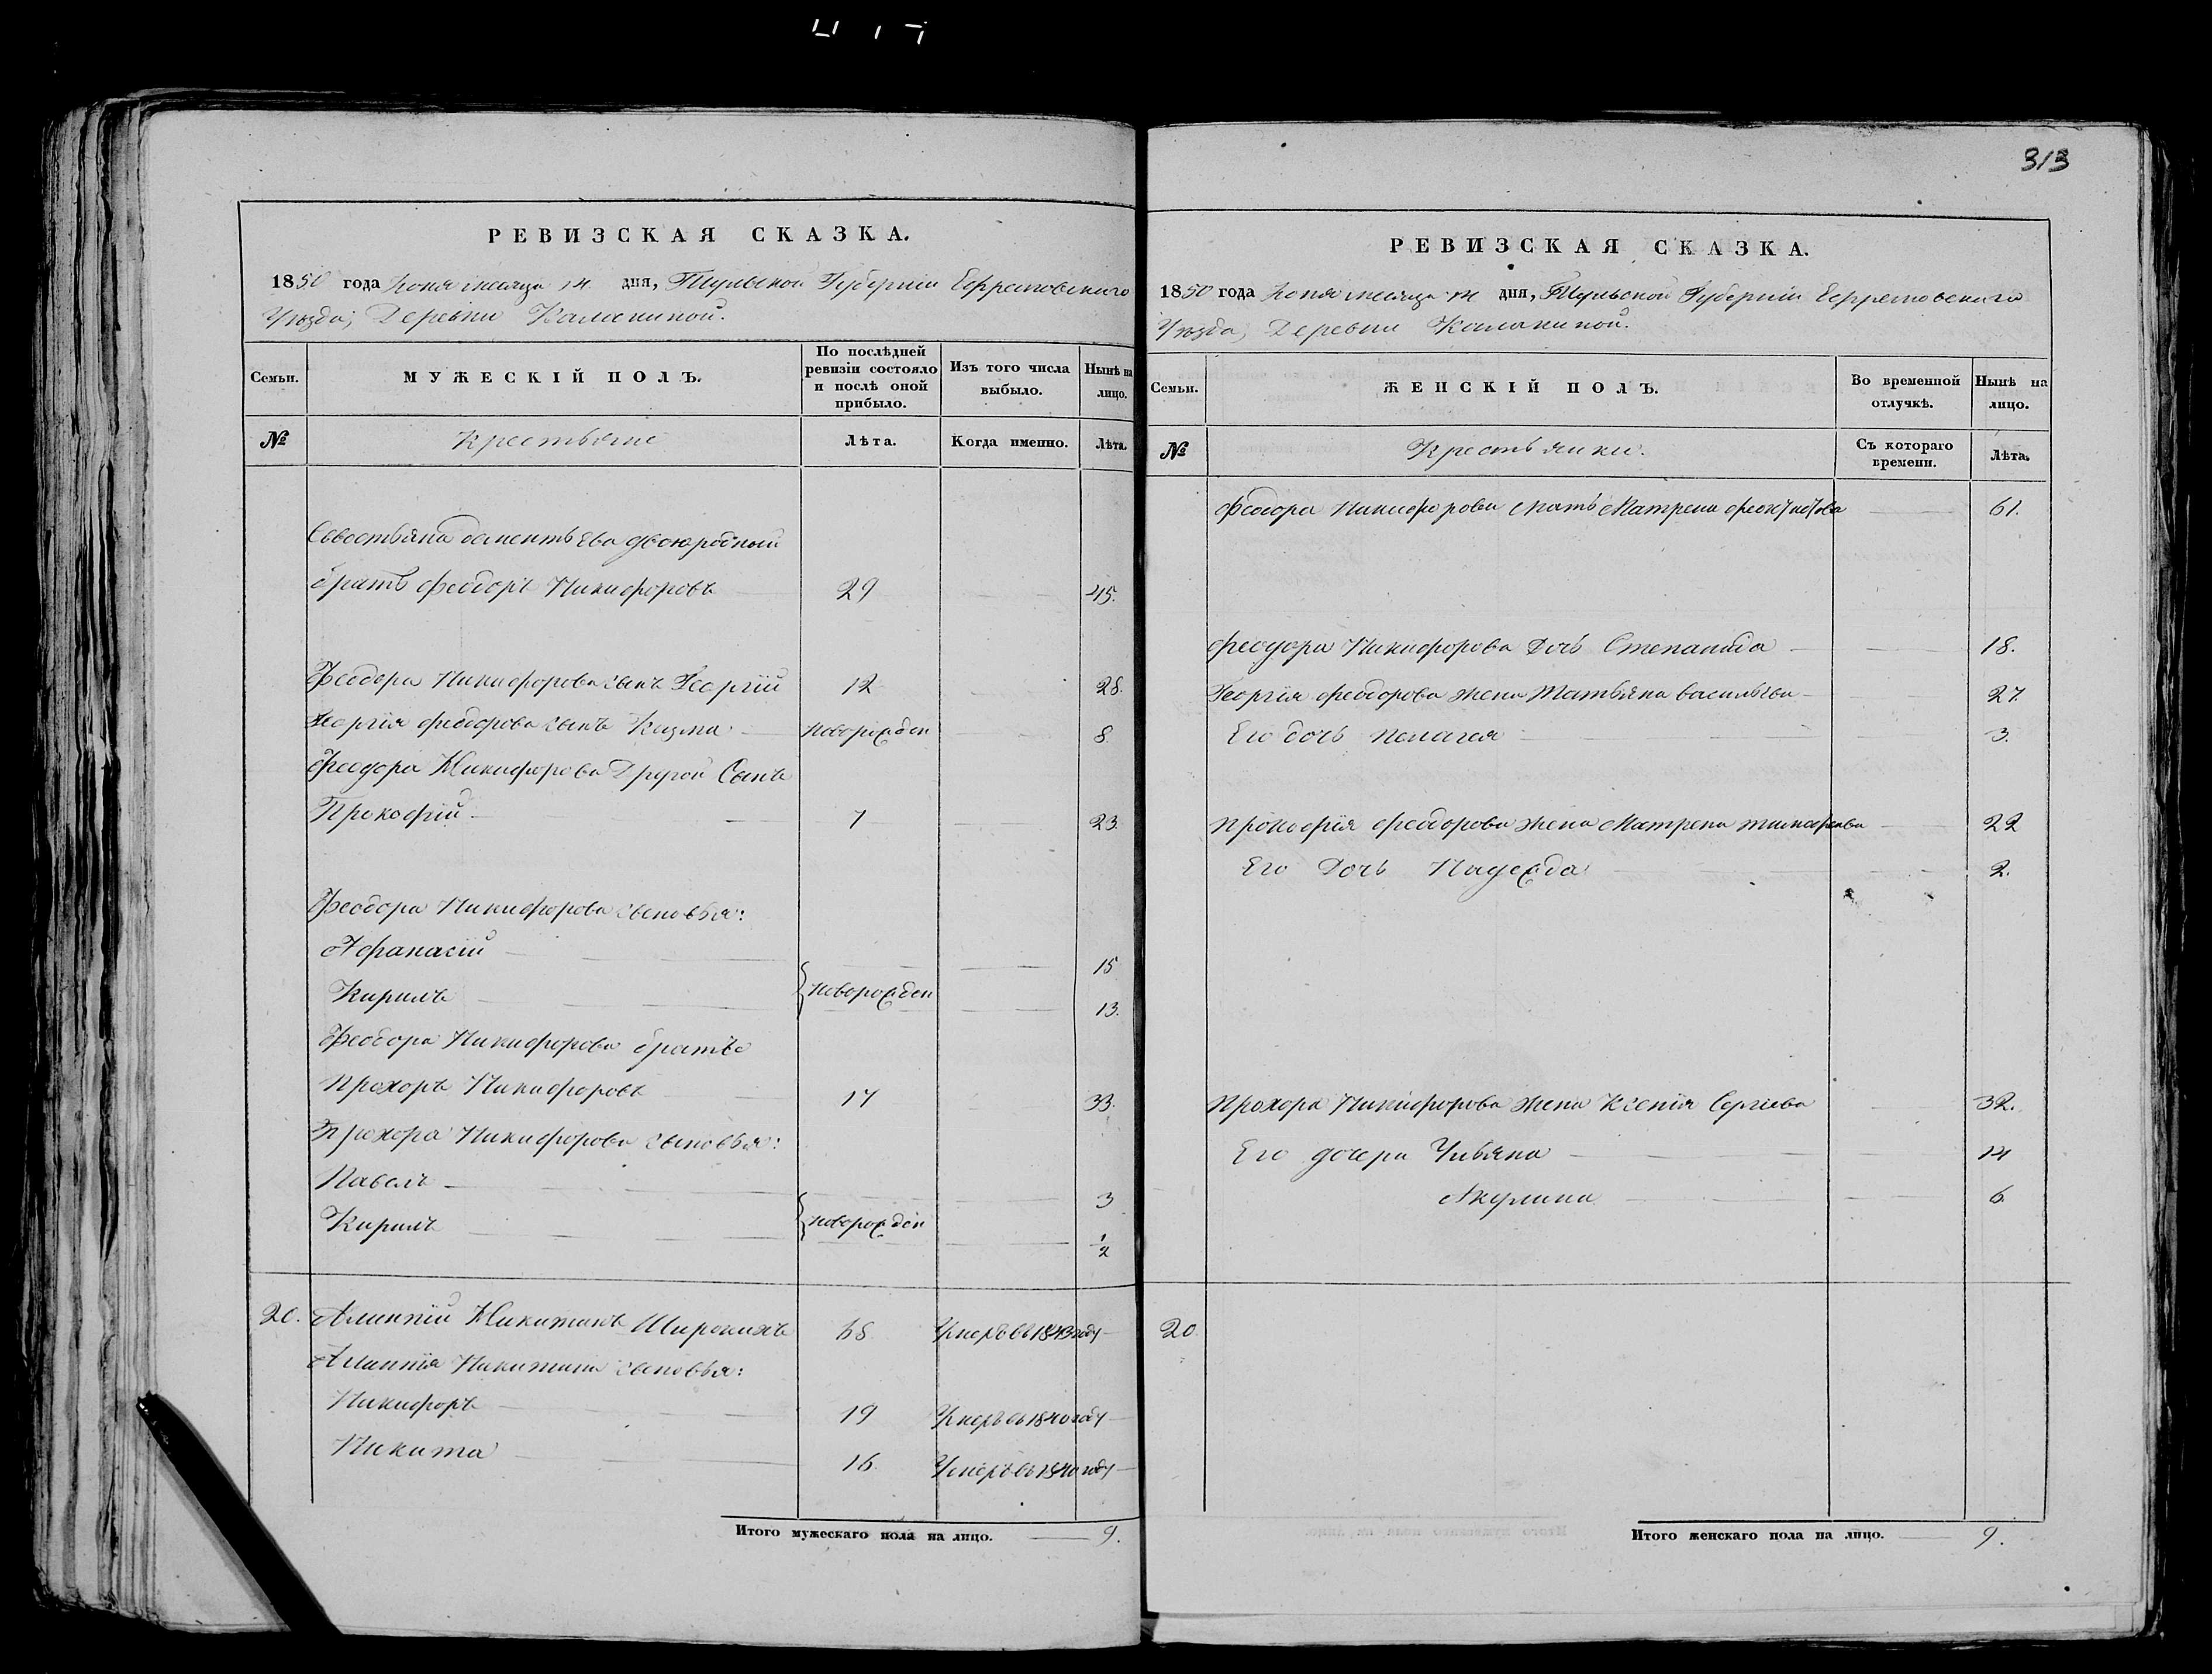 313
РЕВИЗСКАЯ СКАЗКА.
1850 года Іюня месяца дня, Тульской Губерніи Ефремовскаго
Уезда, Деревни Каланиной.
Семьи.
МУЖЕСКІЙ ПОЛЪ.
По послѣдней ревизіи состояло и послѣ оной прибыло.
Изъ того числа выбыло.
Нынѣ на лицо.
№
Крестьяне
Лѣта.
Когда именно.
Лѣта.
двоюродный
братъ Феодоръ Никифоровъ 29 45.
Феодора Никифорова сынъ Георгій 12 28.
Георгія Феодорова сынъ Козма новорожден 8.
Феодора Никифорова Другой Сынъ
Прокофій 7 23.
Феодора Никифорова сыновья:
Афанасій 15
Кирилъ новорожден 13.
Феодора Никифорова братъ
Прохоръ Никифоровъ 17 33.
Прохора Никифорова сыновья:
Павелъ 3
Кирилъ новорожден 1/2
20. Алимпій Никитинъ Широкихъ 68 Умеръ въ 1843 году
Алимпія Никитина сыновья:
Никифоръ 19 Умеръ въ 1840 году
Никита 16. Умеръ въ 1840 году
Итого мужескаго пола на лицо. 9.
РЕВИЗСКАЯ СКАЗКА.
1850 года Іюня месяца дня, Тульской Губерніи Ефремовскаго
Уезда, Деревни Каланиной.
Семьи.
ЖЕНСКІЙ ПОЛЪ.
Во временной отлучкѣ.
Нынѣ на лицо.
№
Крестьянки.
Съ котораго времени.
Лѣта.
Феодора Никифорова мать Матрена 61.
Феодора Никифорова Дочь Степанида 18.
Георгія Феодорова жена Татьяна Васильева 27.
Его дочь Пелагея 3.
Прокофія Феодорова жена Матрена Тимофеева 22
Его Дочь Надежда 2.
Прохора Никифорова жена Ксенія Сергіева 32.
Его дочери Ульяна 14
Акулина 6
20
Итого женскаго пола на лицо. 9.